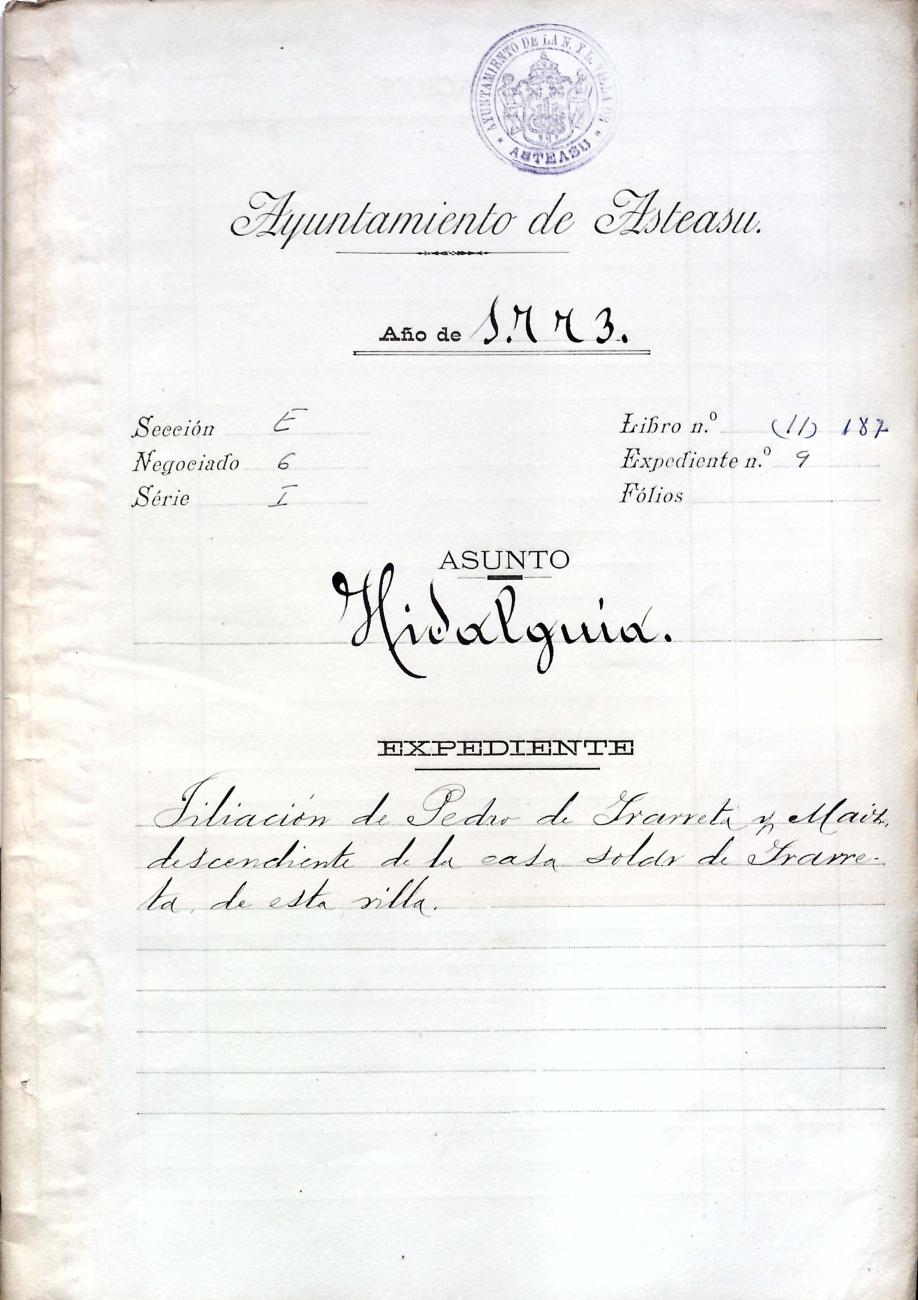 AYUNTAMIENTO DE LA N. Y L. VILLA DE
ASTEASU
Ayuntamiento de Asteasu.
Año de 1.773.
Sección E
Libro n.º (11) 187
Negociado 6
Expediente n.º 9
Série I
Fólios
ASUNTO
Hidalguía.
EXPEDIENTE
Filiación de Pedro de Irarreta y Maiz,
descendiente de la casa solar de Irarre-
ta, de esta villa.